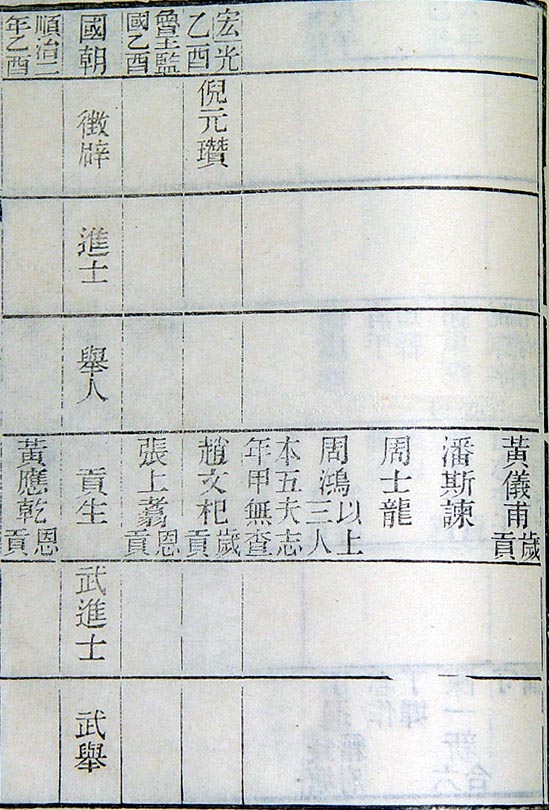 黃儀甫 歲貢
潘斯諫
周士龍
周鴻 以上三人
本五夫志年甲無查
宏光乙酉 倪元瓚 趙文杞 歲貢
魯王監國乙酉 張上 恩貢
國朝 徵辟 進士 舉人 貢生 武進士 武舉
順治二年乙酉 黃應乾 恩貢